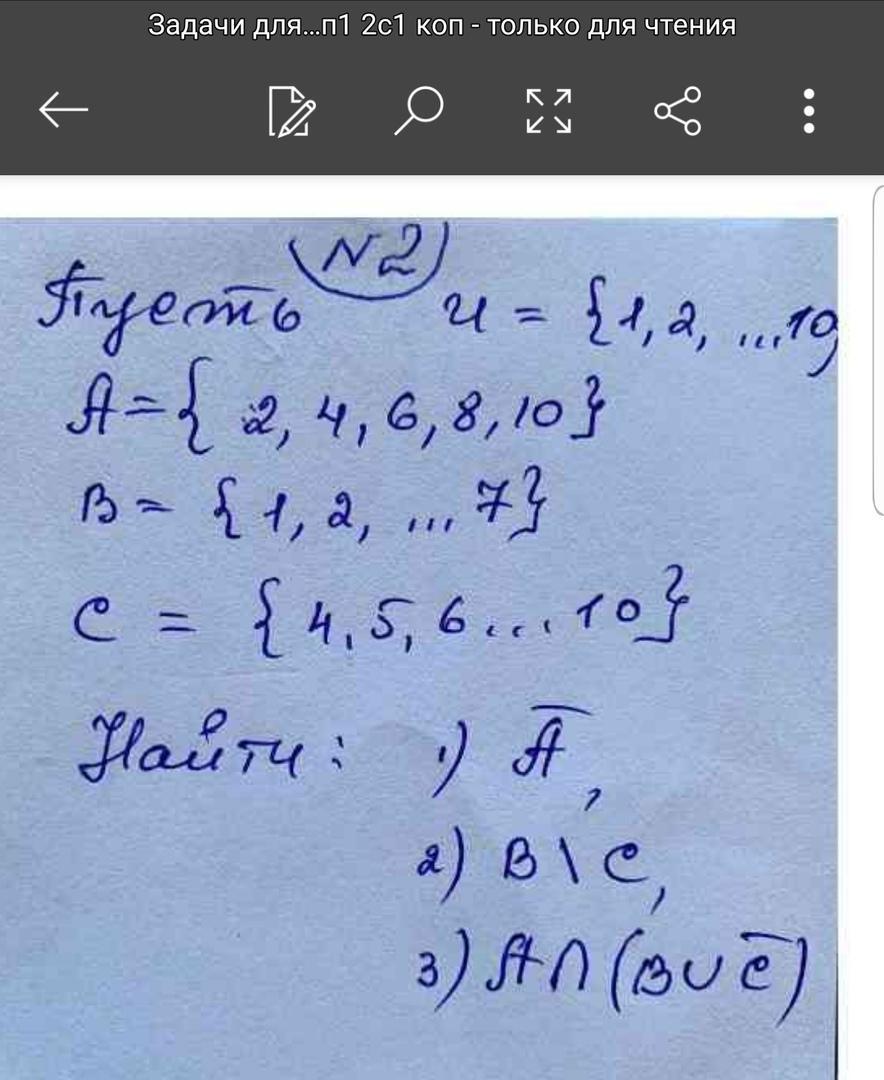 Задачи для...п1 2с1 коп - только для чтения
N2
Пусть U = {1, 2, ...10
A = { 2, 4, 6, 8, 10 }
B = { 1, 2, ... 7 }
C = { 4, 5, 6 ... 10 }
Найти: 1) A̅,
2) B \ C,
3) A ∩ (B ∪ C̅)